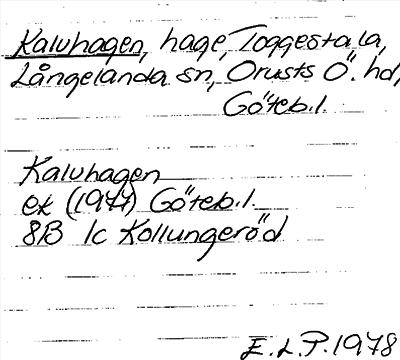 Kalvhagen, hage, Toggestala,
Långelanda sn, Orusts Ö. hd,
Göteb.l.
Kalvhagen
ek (1977) Göteb.l.
8B 1c Kollungeröd
E.L.P. 1978